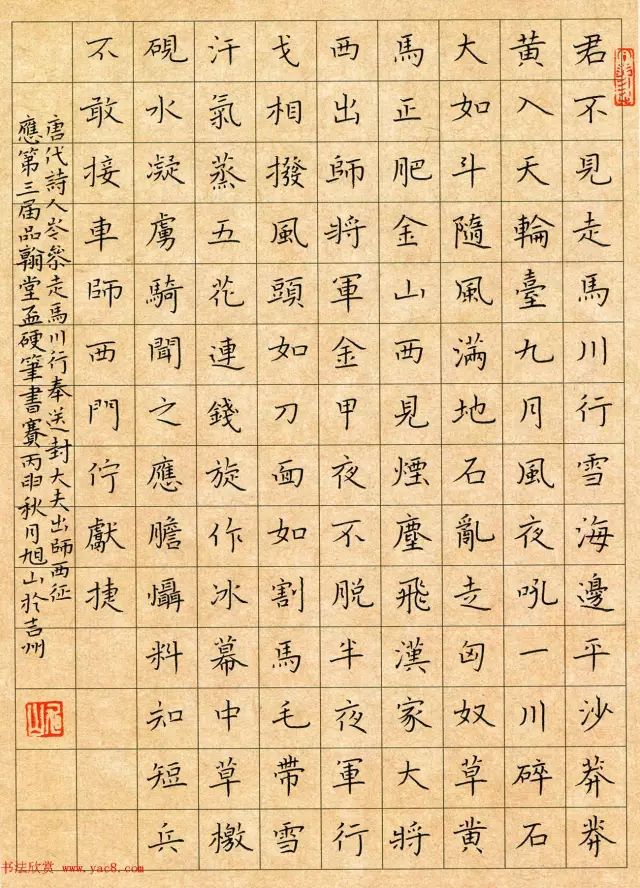 君不見走馬川行雪海邊平沙莽莽
黃入天輪臺九月風夜吼一川碎石
大如斗隨風滿地石亂走匈奴草黄
馬正肥金山西見煙塵飛漢家大將
西出師將軍金甲夜不脱半夜軍行
戈相撥風頭如刀面如割馬毛帶雪
汗氣蒸五花連錢旋作冰幕中草檄
硯水凝虜騎聞之應膽懾料知短兵
不敢接車師西門佇獻捷
唐代詩人岑參走馬川行奉送封大夫出師西征
應第三届品翰堂盃硬筆書賽丙申秋月旭山於吉州
书法欣赏 www.yac8.com